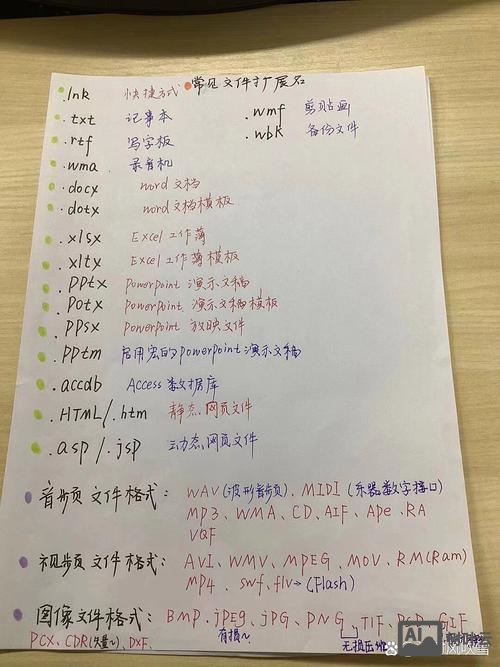 常见文件扩展名
.lnk 快捷方式
.txt 记事本
.rtf 写字板
.wma 录音机
.wmf 剪贴画
.wbk 备份文件
.docx word文档
.dotx word文档模板
.xlsx Excel工作薄
.xltx Excel工作薄模板
.PPtx PowerPoint 演示文稿
.Potx PowerPoint 演示文稿模板
.PPsx PowerPoint 放映文件
.pptm 启用宏的PowerPoint演示文稿
.accdb Access 数据库
.HTML/.htm 静态网页文件
.asp/.jsp 动态网页文件
音频文件格式: WAV(波形音频)、MIDI(乐器数字接口)
MP3、WMA、CD、AIF、APe、RA
VQF
视频文件格式: AVI、WMV、MPEG、MOV、RM(Ram)
MP4、swf、flv→(Flash)
图像文件格式: BMP、jPEg、jPG、PNG、TIF、PSD、GIF
有损 无损压缩
PCX、CDR(矢量)、DXF、
AI